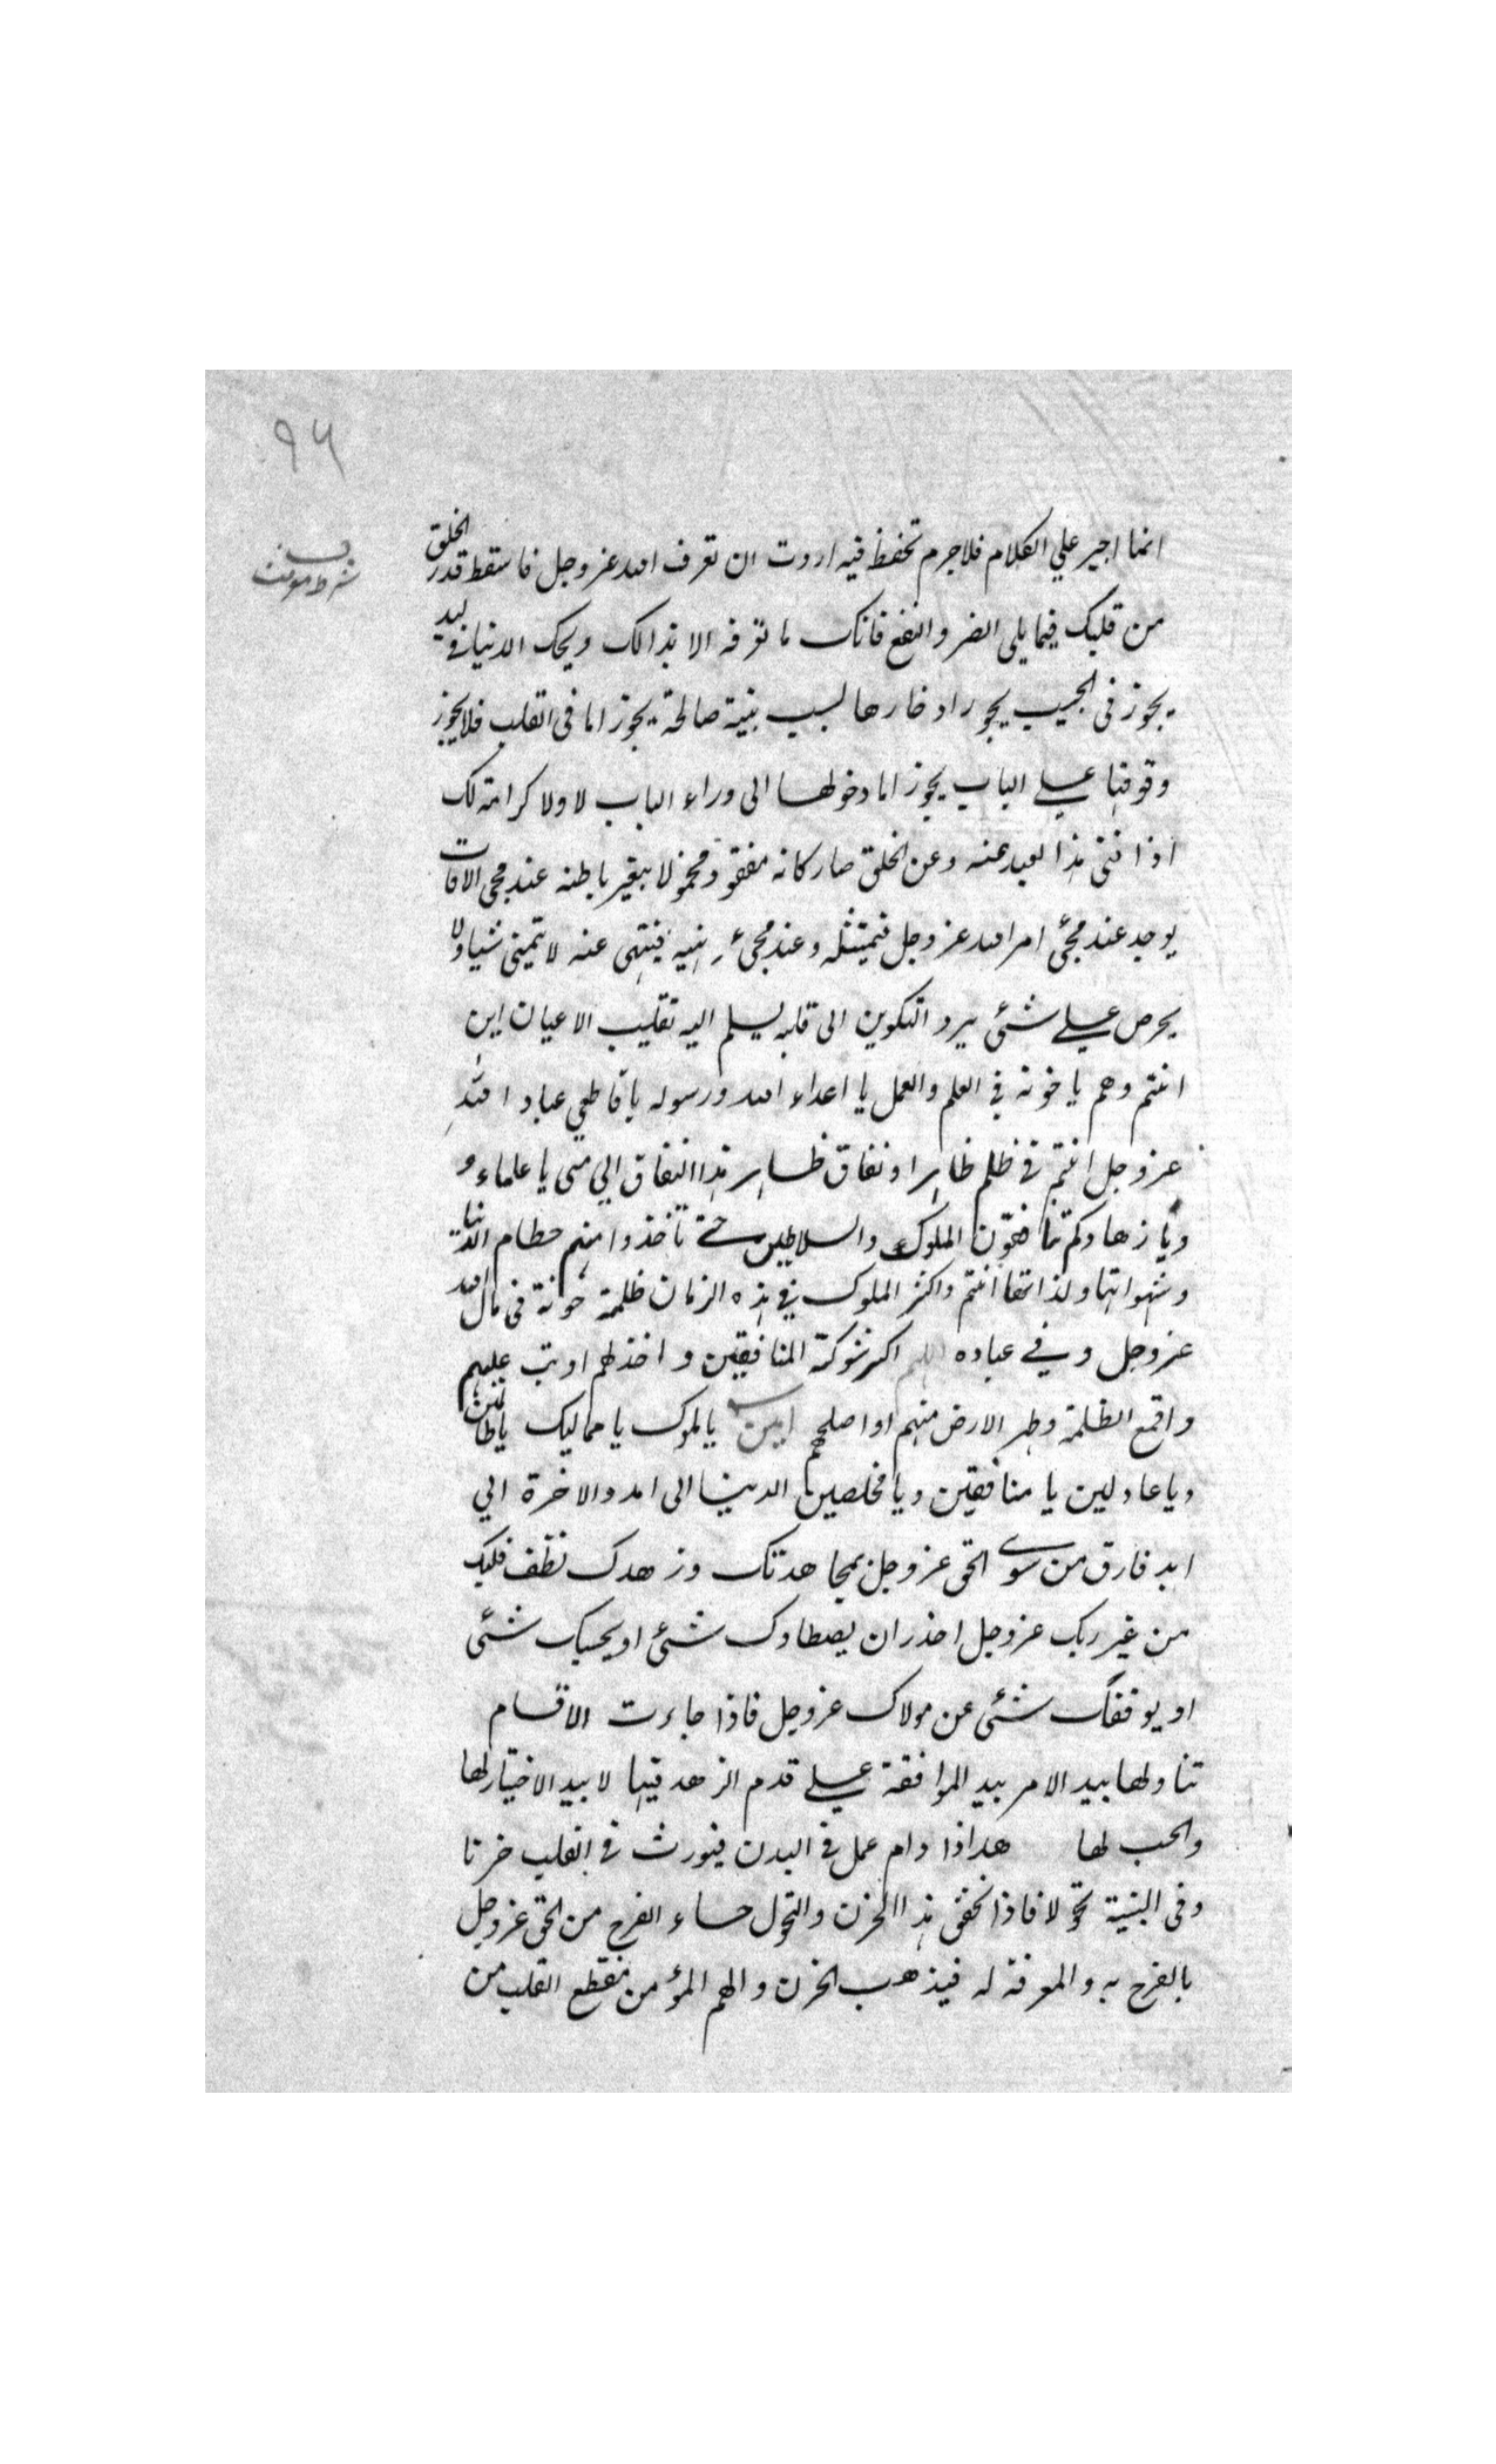 ٩٦
انما اجير علي الكلام فلاجرم تحفظ فيه اردت ان تعرف الله عز وجل فاسقط قدر الخلق
من قلبك فيما يلى الضر والنفع فانك ما تعرفه الا بذالك ويحك الدنيا في ليد
يجوز فى الجيب يجوز ادخارها لسبب بنية صالحة يجوز اما فى القلب فلا يجوز
وقوفها على الباب يجوز اما دخولها الى وراء الباب لا ولا كرامة لك
اذا فنى هذا لعبد عنه وعن الخلق صار كانه مفقود محمو لا يتغير باطنه عند مجى الافات
يوجد عند مجئ امر الله عز وجل فيمتثله وعند مجئ نهيه فينتهى عنه لا يتمنى شيا ولا
يحرص على شئى يرد التكوين الى قلبه يسلم اليه تقليب الاعيان اين
انتم وهم يا خونة في العلم والعمل يا اعداء الله ورسوله يا قاطعي عباد الله
عز وجل انتم في ظلم ظاهرا ونفاق ظاهر هذا النفاق الي متى يا علماء و
ويا زهاد كم تنافقون الملوك والسلاطين حتى تأخذوا منهم حطام الدنيا
وشهواتها ولذاتها انتم واكثر الملوك في هذه الزمان ظلمة خونة فى مال الله
عز وجل وفي عباده اللهم اكسر شوكة المنافقين واخذلهم او تب عليهم
واقمع الظلمة وطهر الارض منهم او اصلحهم امين يا لموك يا مماليك يا ظالمين
ويا عادلين يا منافقين ويا مخلصين الدنيا الى امد والاخرة الي
ابد فارق من سوى الحق عز وجل بمجاهدتك وزهدك نظف قلبك
من غير ربك عز وجل احذر ان يصطادك شئى او يحبسك شئى
او يوقفك شئى عن مولاك عز وجل فاذا جاءت الاقسام
تناولها بيد الامر بيد الموافقة على قدم الزهد فيها لا بيد الاختيار لها
والحب لها هذا اذا دام عمل في البدن فيورث في القلب حزنا
وفى البنية نحولا فاذا تحقق هذا الحزن والنحول جاء الفرح من الحق عز وجل
بالفرح به والمعرفة له فيذهب الحزن والهم المؤمن منقطع القلب من